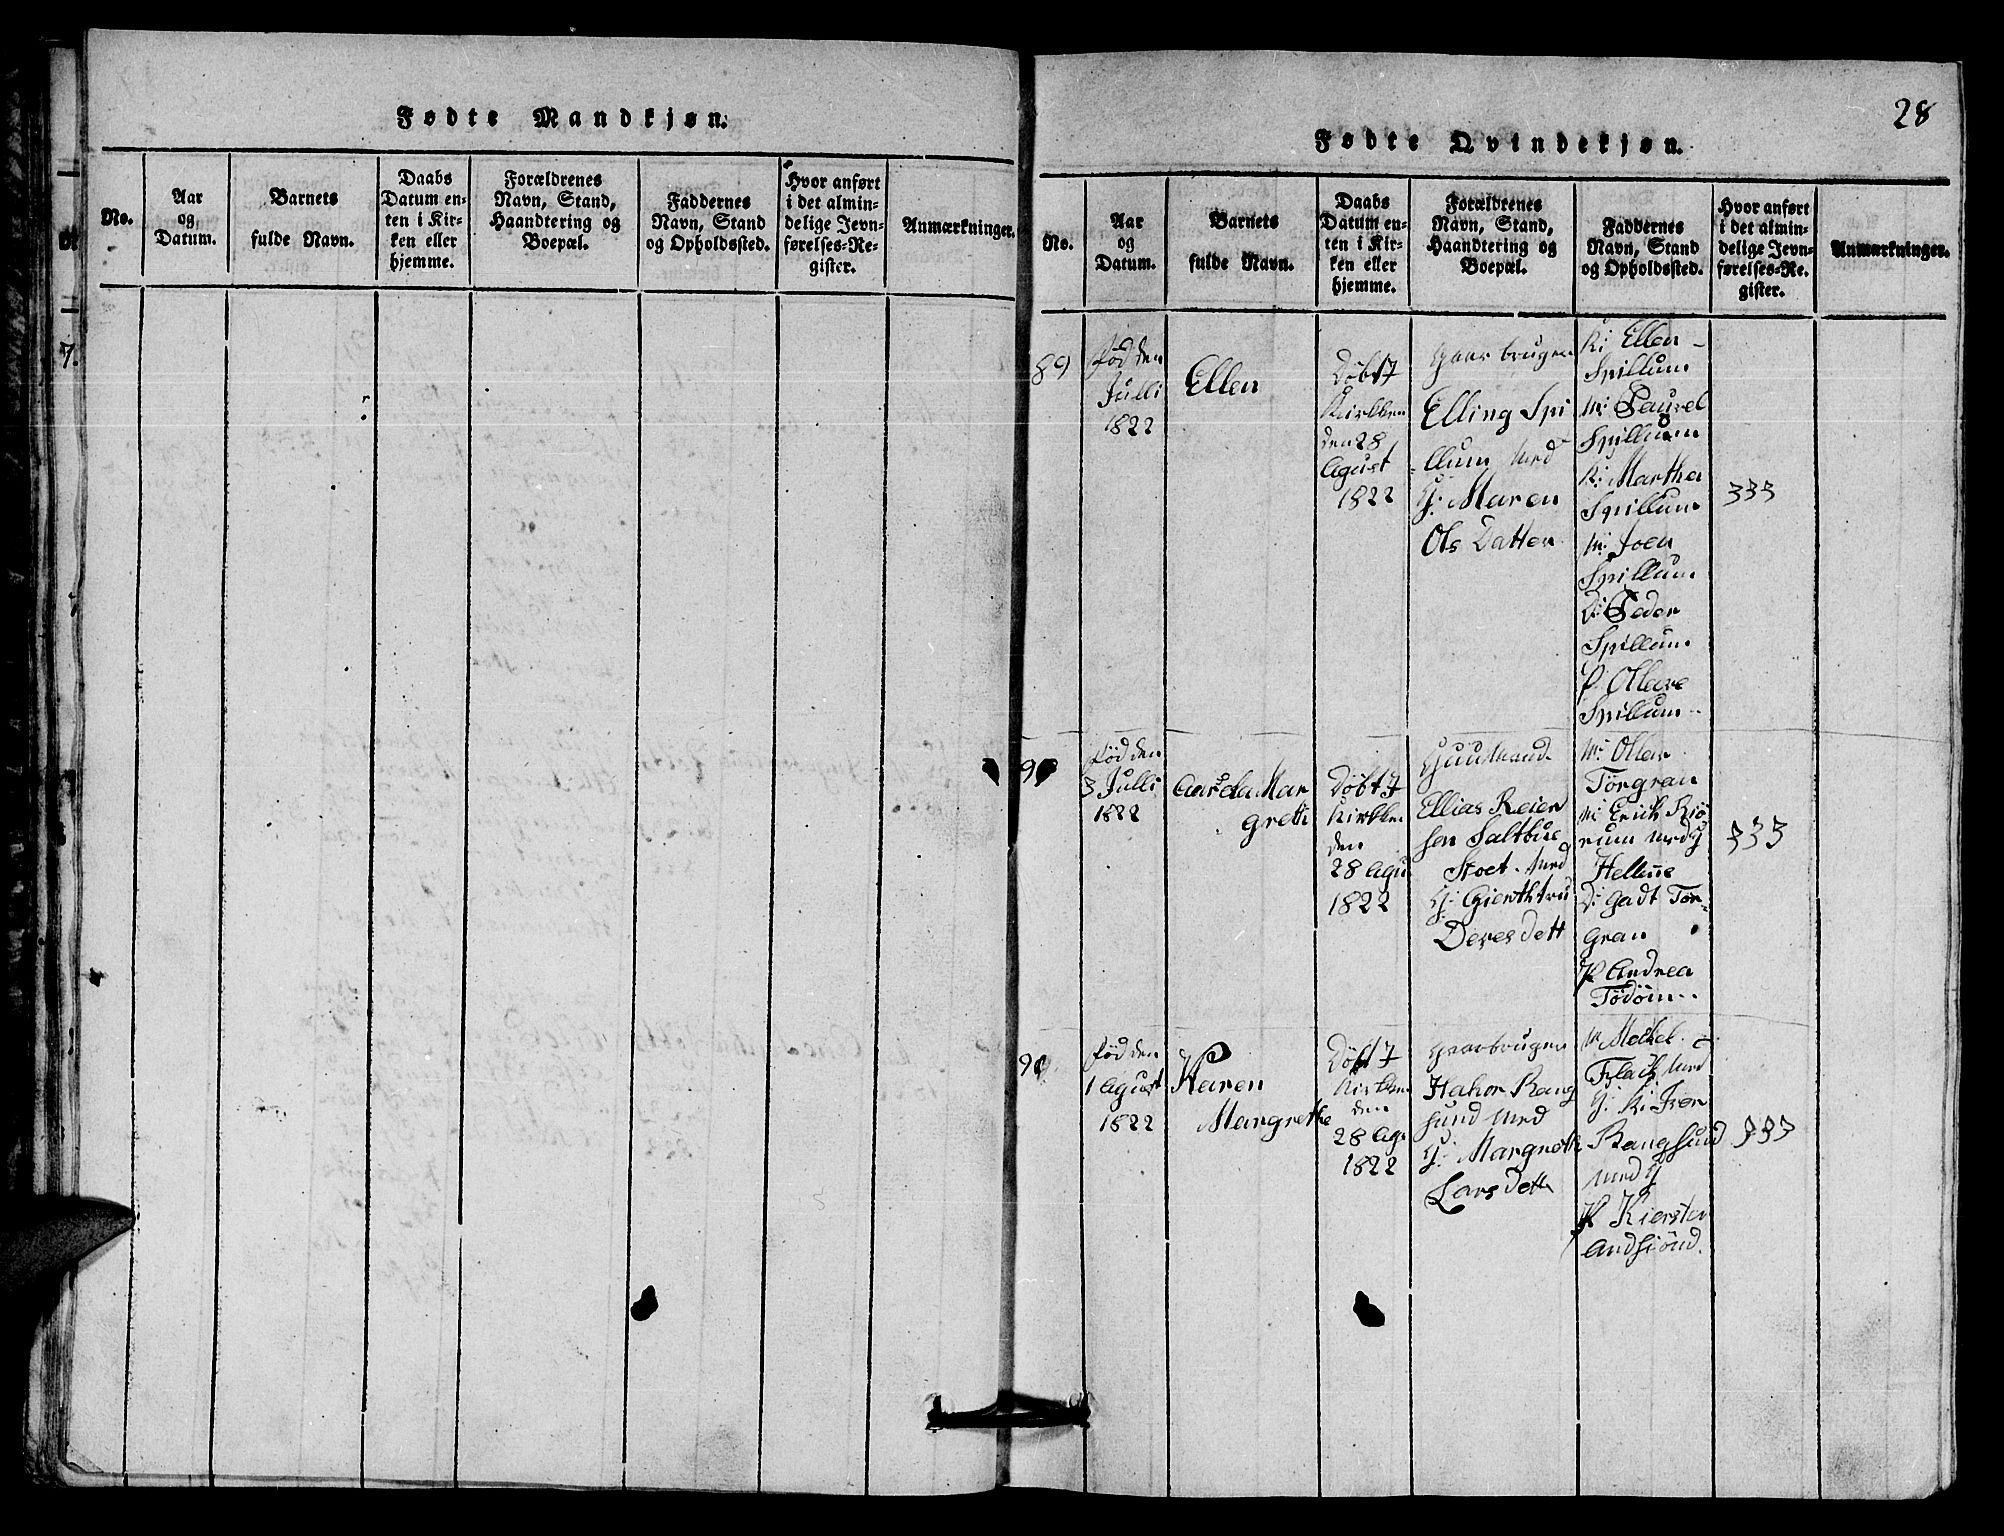 28
Fødte Mandkjøn.
No.
Aar
og
Datum.
Barnets
fulde Navn.
Daabs
Datum en-
ten i Kir-
ken eller
hjemme.
Forældrenes
Navn, Stand,
Haandtering og
Boepæl.
Faddernes
Navn, Stand
og Opholdssted.
Hvor anført
i det almin-
delige Jevn-
førelses-Re-
gister.
Anmærkninger.
7.
Fødte Qvindekjøn.
No.
Aar
og
Datum.
Barnets
fulde Navn.
Daabs
Datum en-
ten i Kir-
ken eller
hjemme.
Forældrenes
Navn, Stand,
Haandtering og
Boepæl.
Faddernes
Navn, Stand
og Opholdssted.
Hvor anført
i det almin-
delige Jevn-
førelses-Re-
gister.
Anmærkninger.
89
fød den
Julli
1822
Ellen
Døbt J
Kirkken
den 28
Agust
1822
Gaarbruger
Elling Spi
llum Med
H: Maren
Ols Datter
K: Ellen
Spillum
M: Paurel
Spillum
K: Martha
Spillum
M: Joen
Spillum
D: Peder
Spillum
P: Ollava
Spillum
333
fød den
3 Julli
1822
Mar
greth
Døbt J
Kirkken
den
28 Agu
1822
Huusmand
Ellias Reier
sen Saltbue
Med
Deres dett
M: Ollen
Torgran
M: Erich
Med H
D: Gadt Tor-
gran
P Andrea
333
fød den
1 Agust
1822
Karen
Margrethe
Døbt J
Kirkken
den
28 Ag:
1822
Gaarbruger
Hahor Rang
sund Med
H: Margreth
Lars dett
M Meckel
Flach Med
H: K: Iver
Rangsund
Med H
P Kiersten
Andsiønd.
333